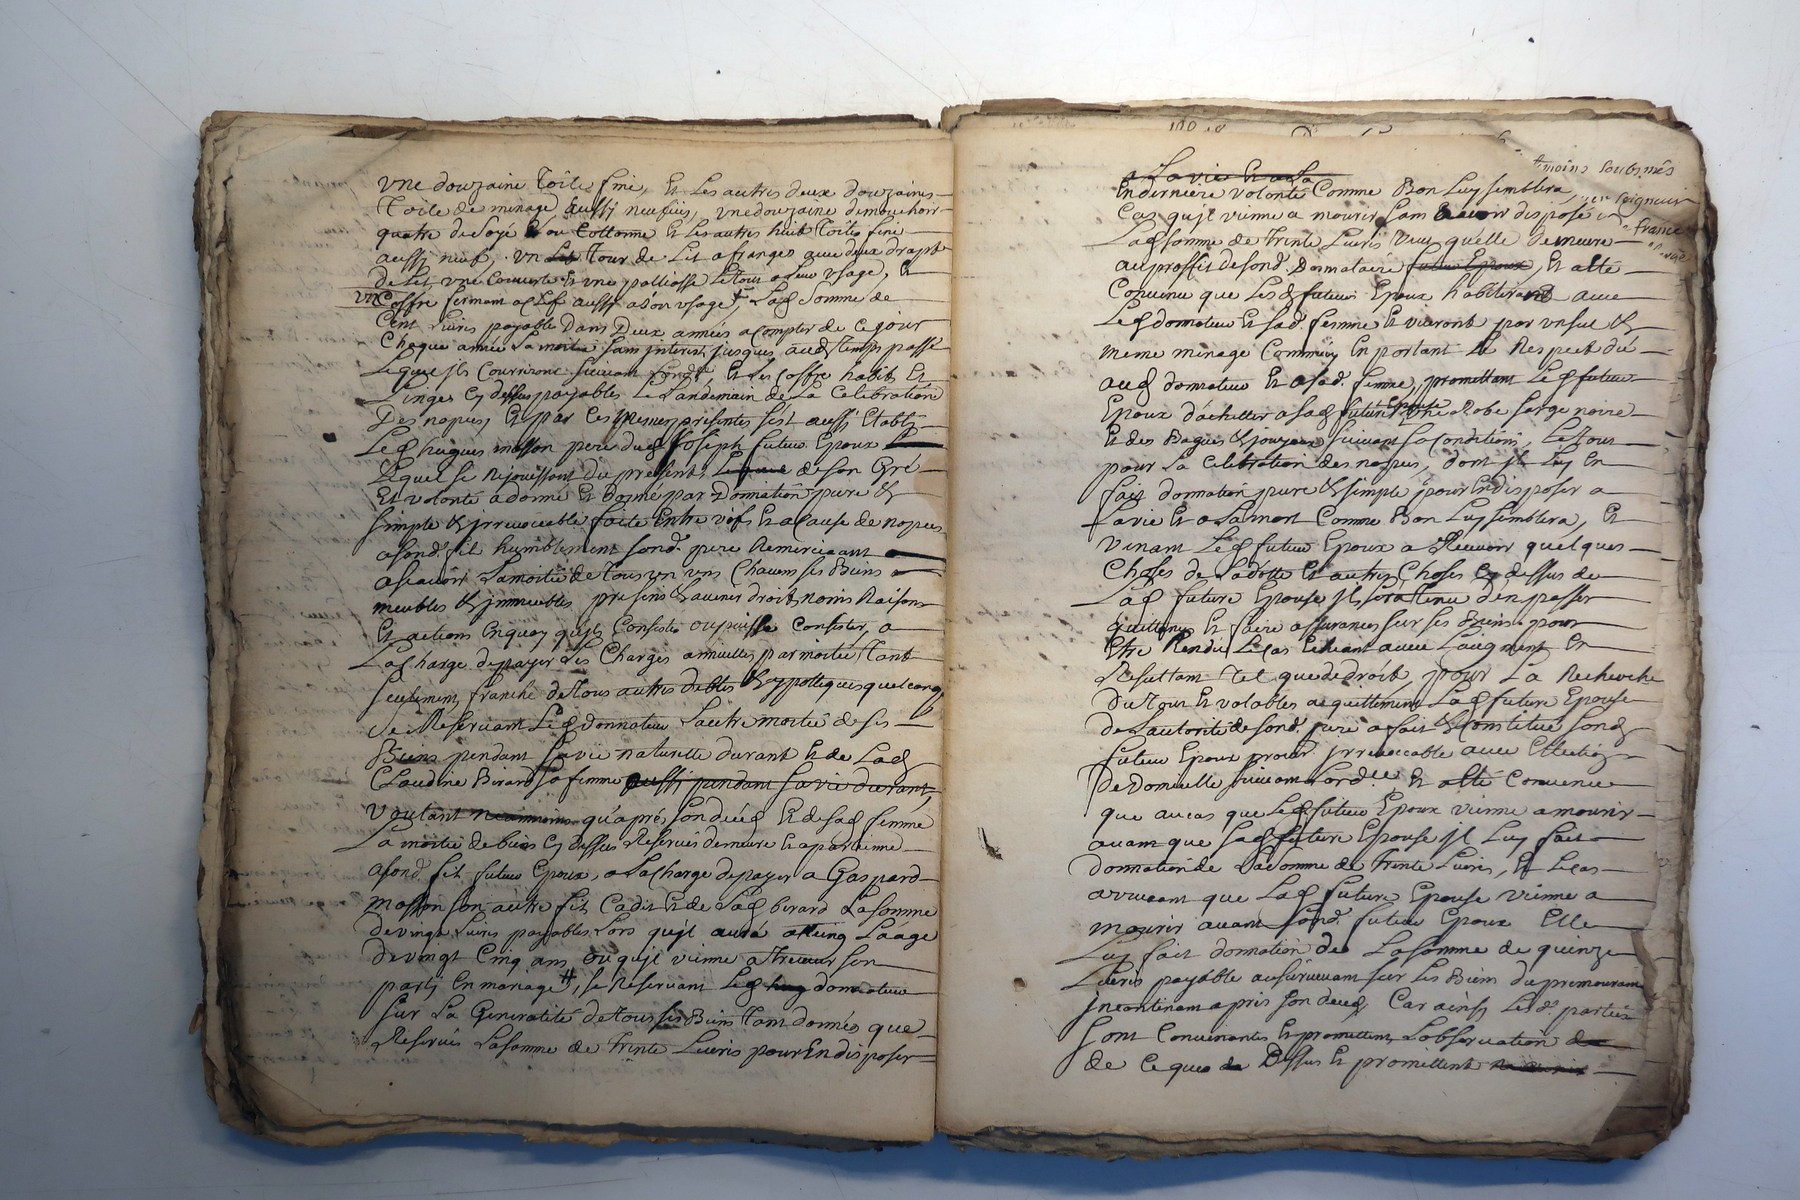 une douzaine toiles fine, et les autres deux douzaines
toile de menage aussi neufves, une douzaine de mouchoirs
quatre de soye et ou cottonne et les autres huit toiles fine
aussi neufs, un tour de lit a franges avec deux draps
de lit une couverte et une palliasse le tout a leur usage, et
un coffre fermant a clef aussi a son usage, lad somme de
cent livres payable dans deux années a compter de ce jour
chaque année la moitié sans interest jusques aud temps passé
lequel ils courriront suivant, et les coffre habits et
linges cy dessus payables le landemain de la celebration
des nopces, et par ces mesmes presentes s'est aussi etably
led hugues masson pere dud Joseph futur epoux
lequel se rejouissant du present, de son gré
et volonté a donné et donne par donnation pure et
simple et irrevocable faite entre vifs et a cause de nopces
a sond. fil humblement sond. pere remerciant
a scavoir la moitié de tous un uns chacuns ses biens
meubles et immeubles presens et avenir droits noms raisons
et actions en quoy qu'ils consiste ou puisse consister, a
la charge de payer les charges annuelles par moitié tant
seulement, franche de tous autres debtes et ypotteques quelconq
se reservant led donnateur l'autre moitié de ses
biens pendant sa vie naturelle durant et de lad
Claudine Birard sa femme aussi pendant sa vie durant,
voulant neanmoins qu'aprés son deceds et de sad femme
la moitié de biens cy dessus reservés demeure et apartienne
a sond. fil futur epoux, a la charge de payer a Gaspard
masson son autre fil cadit et de lad birard la somme
de vingt livres payables lors qu'il aura atteing l'aage
de vingt cinq ans ou qu'il vienne a treuver son
party en mariage #, se reservant led donnateur
sur la generalité de tous ses biens tant donnés que
reservés la somme de trente livres pour en disposer
# moins soubsnés
seigneur
france
a la vie et a la
en derniere volonté comme bon luy semblera,
cas qu'il vienne a mourir sans avoir disposé
lad somme de trente livres veut qu'elle demeure
au proffit de sond. donnataire futur epoux, et a eté
convenu que lesd futurs epoux habiteront avec
led donnateur et sad. femme et vivront par un seul et
meme menage commun en portant le respect dû
aud donnateur et a sad. femme, promettant led futur
epoux d'achetter a sad future epouse une robe sarge noire
et des bagues et joyaux suivant sa condition, le tout
pour la celebration des nopces, dont il luy en
fait donnation pure et simple pour en disposer a
la vie et a la mort comme bon luy semblera, et
venant led futur epoux a recevoir quelques
choses de la dotte et autres choses cy dessus de
lad future epouse il sera tenu d'en passer
quittance et faire assurances sur ses biens pour
etre rendu le cas echeant avec l'augment en
resultant tel que de droit, pour la recherche
du tout et volables acquittement lad future epouse
de l'autorité de sond. pere a fait et constitué sond
futur epoux procur. irrevocable avec election
de domicille suivant l'ord.ce et a eté convenu
que au cas que led futur epoux vienne a mourir
avant que sad future epouse il luy fait
donnation de la somme de trente livres, et le cas
arrivant que lad future epouse vienne a
mourir avant sond. futur epoux elle
luy fait donnation de la somme de quinze
livres payable au survivant sur les biens du premourant
incontinent apres son deceds car ainsi lesd. parties
sont convenantes et promettent l'observation
de ce que dessus et promettent